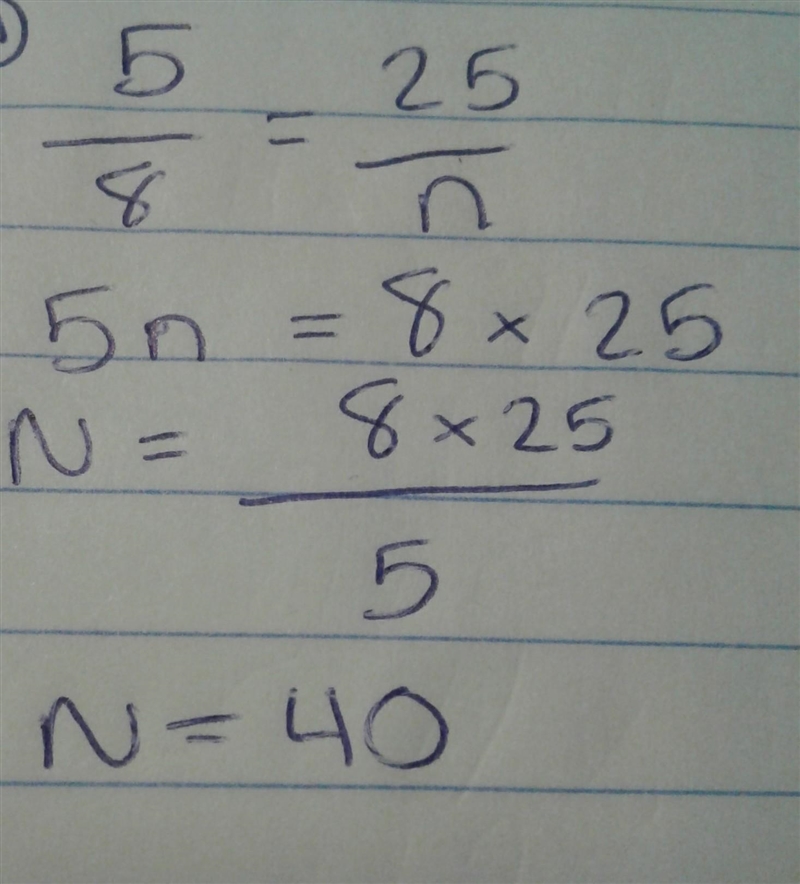 5/8 = 25/n
5n = 8 × 25
N = 8 × 25 / 5
N = 40